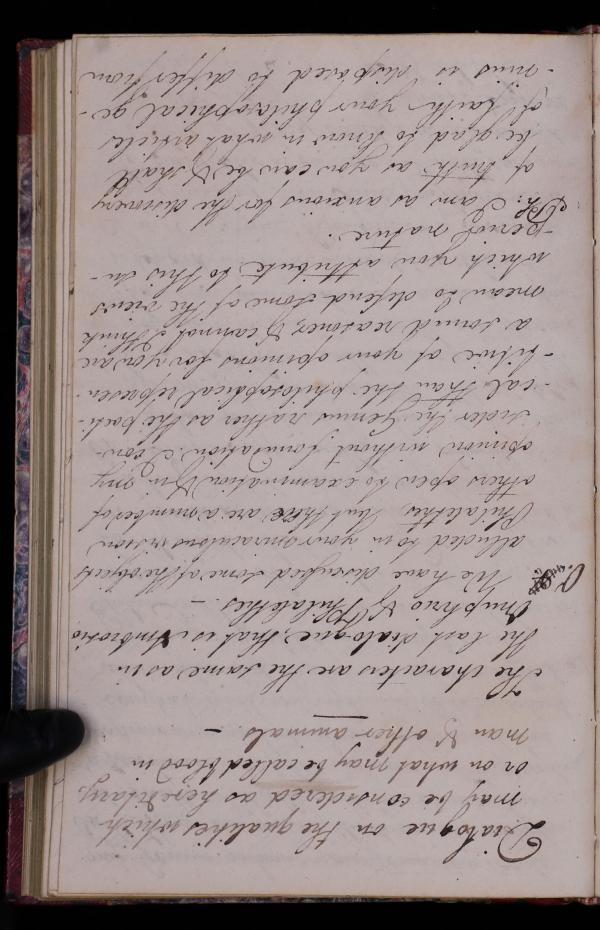 Dialogue on the qualities which
may be considered as hereditary
or on what may be called blood in
man & other animals –
The characters are the same as in
the last dialogue, that is Ambrosio
Onuphrio & Philalethes. –
O. We have discussed some of the objects
alluded to in your miraculous vision
Philalethes but there are a number of
others open to examination & in my
opinion without foundation. I con-
-sider the Genius rather as the poeti-
-cal than the philosophical represen-
-tative of your opinions for you are
a sound reasoner, & I cannot think you
mean to defend some of the views
which you attribute to this su-
-perior nature.
Ph: I am as anxious for the discovery
of truth as you can be & shall
be glad to know in what articles
of faith your philosophical ge-
-nius is disposed to differ from